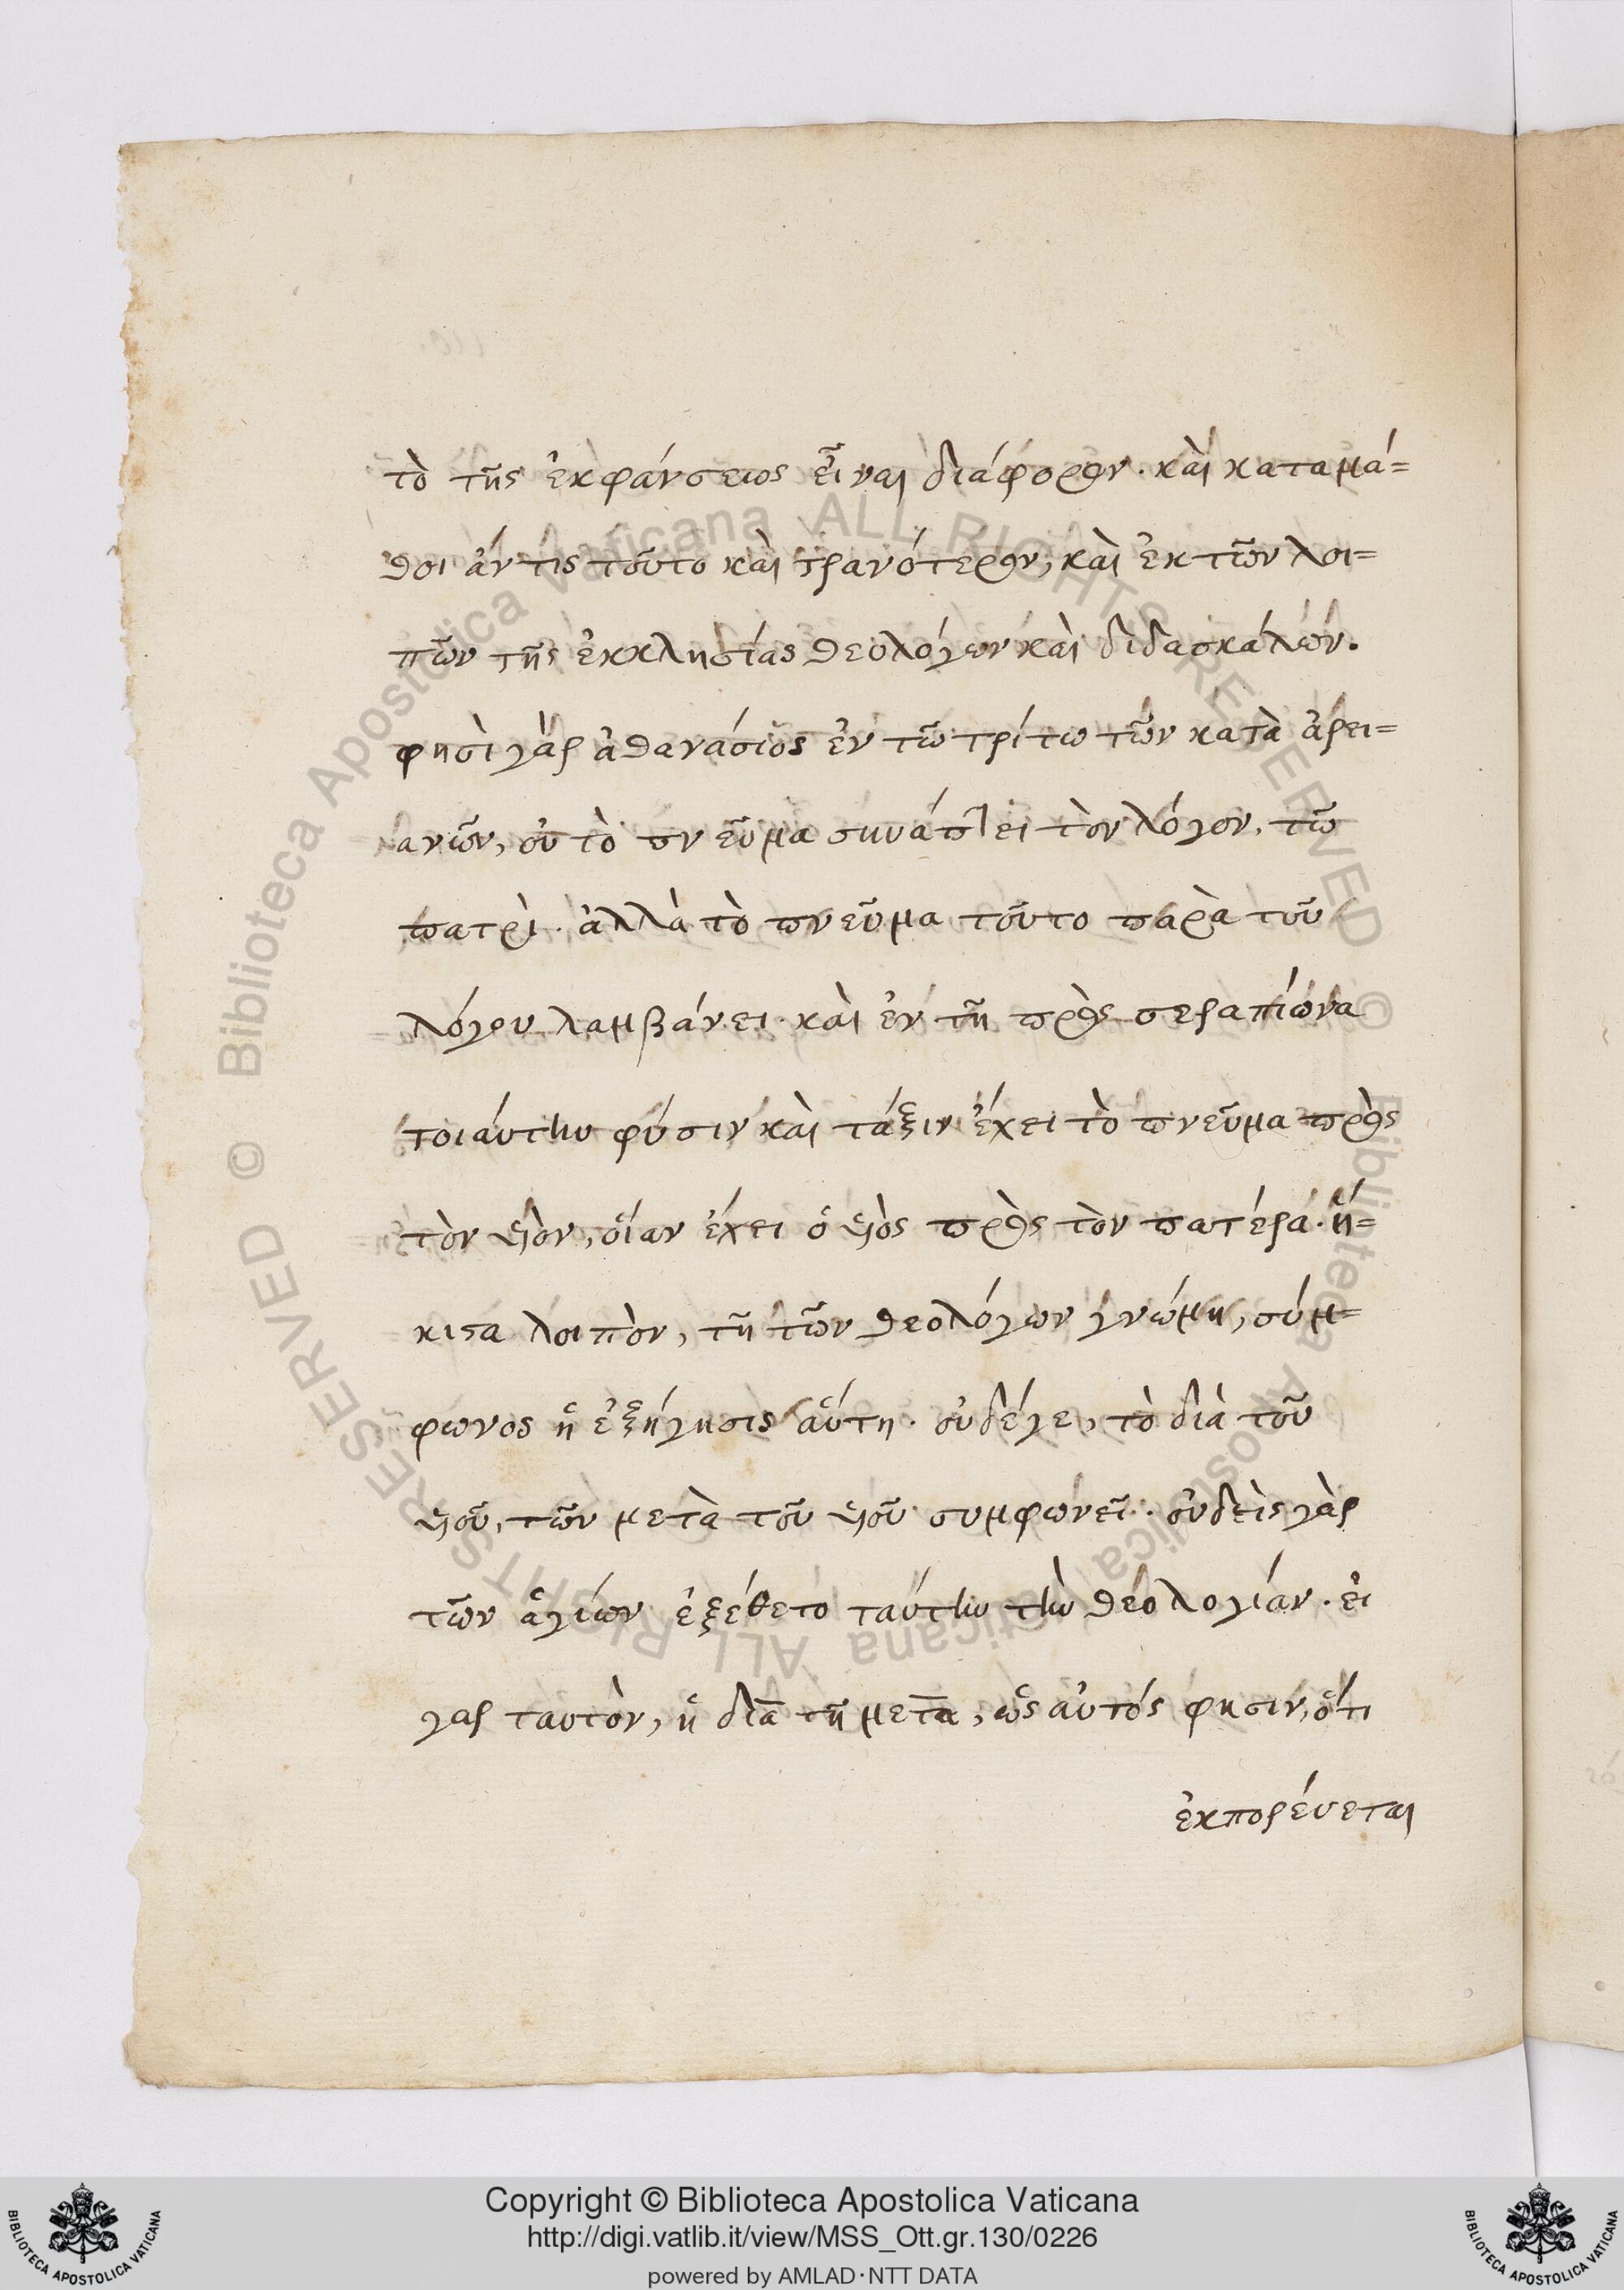 τὸ τῆς ἐκφάνσεως εἶναι διάφορον· καὶ καταμά=
θοι ἄν τις τοῦτο καὶ τρανότερον, καὶ ἐκ τῶν λοι=
πῶν τῆς ἐκκλησίας θεολόγων καὶ διδασκάλων.
φησὶ γὰρ ἀθανάσιος ἐν τῶ τρίτω τῶν κατὰ ἀρει=
ανῶν, οὐ τὸ πνεῦμα συνάπτει τὸν λόγον, τῶ
πατρὶ· ἀλλὰ τὸ πνεῦμα τοῦτο παρὰ τοῦ
λόγου λαμβάνει· καὶ ἐν τῆ πρὸς σεραπίωνα
τοιάυτην φύσιν καὶ τάξιν ἔχει τὸ πνεῦμα πρὸς
τὸν υἱὸν, οἵαν ἔχει ὁ υἱὸς πρὸς τὸν πατέρα· ἥ=
κιστα λοιπὸν, τῆ τῶν θεολόγων γνώμη, σύμ=
φωνος ἡ ἐξήγησις αὕτη· οὐδέγε, τὸ διὰ τοῦ
υἱοῦ, τῶν μετὰ τοῦ υἱοῦ συμφωνεῖ· οὐδεὶς γὰρ
τῶν ἁγίων ἐξέθετο ταύτην τὴν θεολογίαν· εἰ
γαρ ταυτὸν, ἡ διὰ τῆ μετὰ, ὡς αὐτός φησιν, ὅτι
ἐκπορέυεται
Copyright © Biblioteca Apostolica Vaticana
http://digi.vatlib.it/view/MSS_Ott.gr.130/0226
powered by AMLAD·NTT DATA
BIBLIOTECA APOSTOLICA VATICANA
BIBLIOTECA APOSTOLICA VATICANA
© Biblioteca Apostolica Vaticana ALL RIGHTS RESERVED © Biblioteca Apostolica Vaticana ALL RIGHTS RESERVED